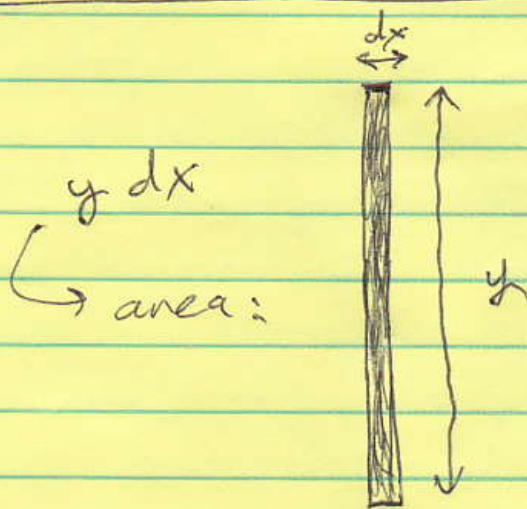 dx
y dx
area:
y